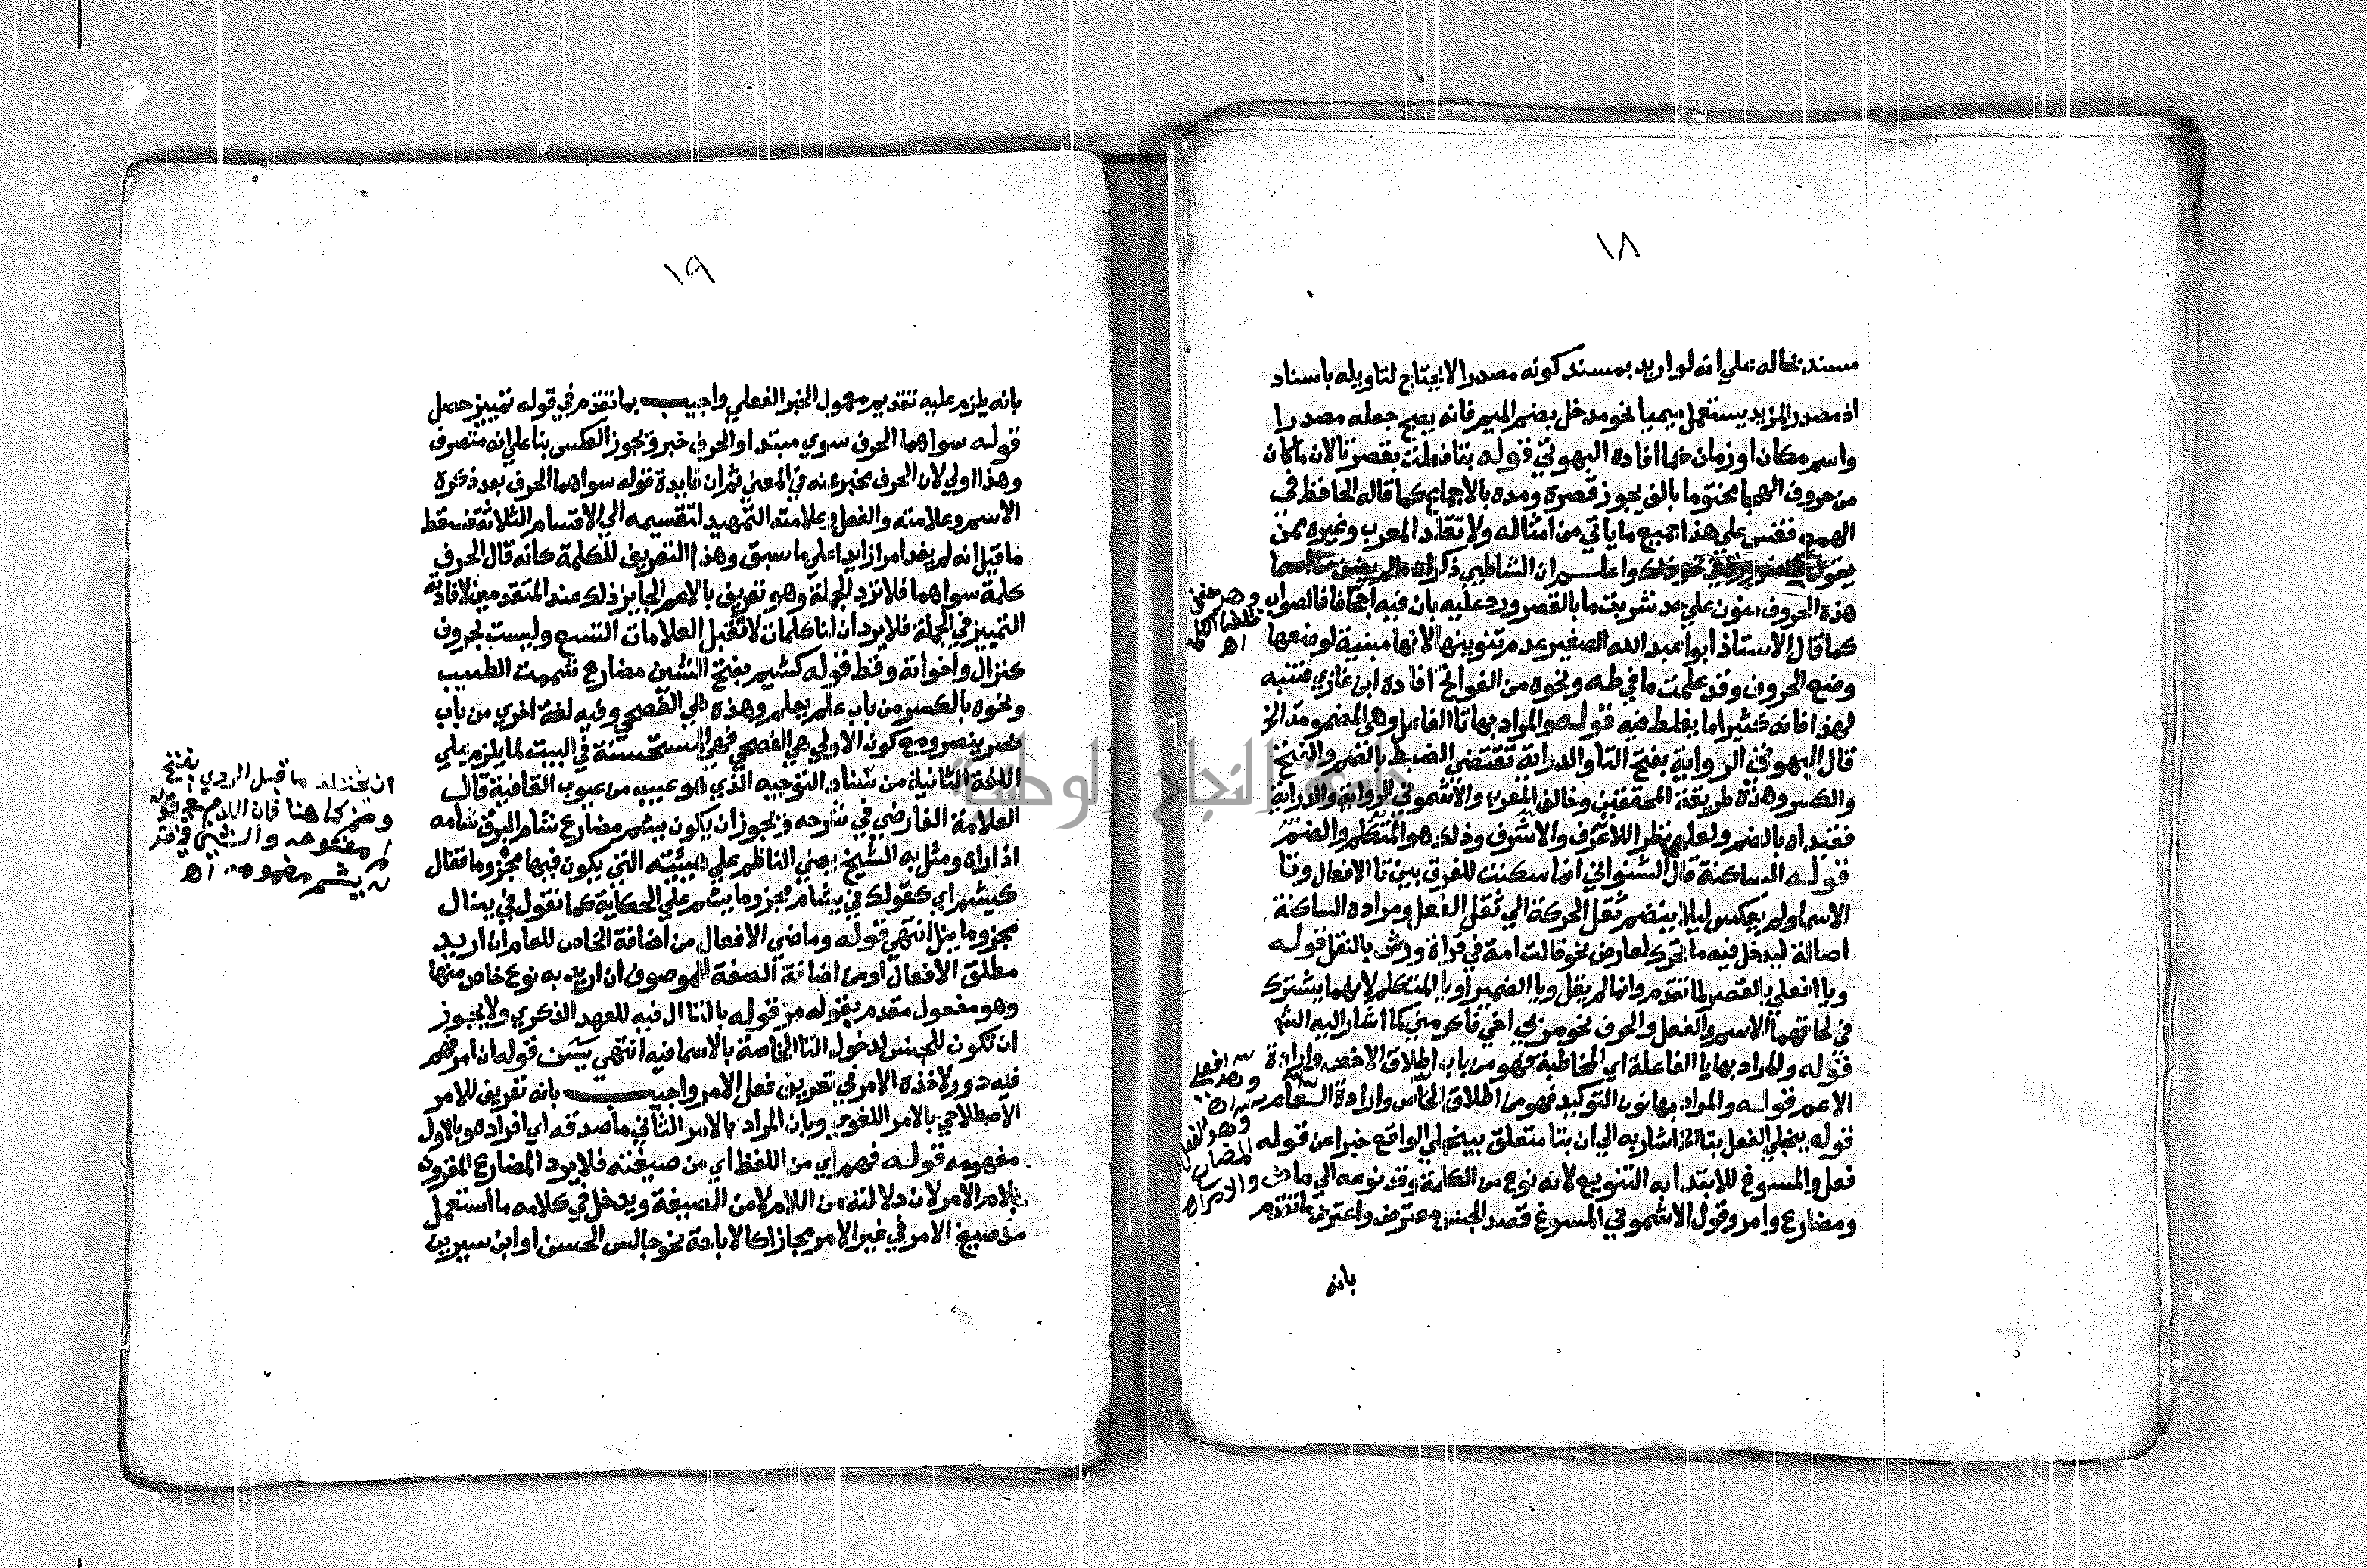 ١٨
مسند بحاله على انه لو اريد بمسند كونه مصدرا لا يحتاج لتاويله باسناد
اذ مصدر المزيد يستعمل ميميا نحو مدخل بضم الميم فانه يصح جعله مصدرا
واسم مكان او زمان كما افاده البهوتي قوله بتا فعلت بقصر تا لان ما كان
من حروف الهجا مختوما بالف يجوز قصره ومده بالاجماع كما قاله الحافظ في
الهمع فقس على هذا جميع ما ياتي من امثاله ولا تقلد المعرب وغيره ممن
يقول في نحو ذلك واعلم ان الشاطبي ذكر ان
هذه الحروف منون على حد شربت ما بالقصر ورد عليه بان فيه اجحافا فالصواب
كما قال الاستاذ ابو عبد الله الصغير عدم تنوينها لانها مبنية لوضعها
وضع الحروف وقد علمت ما في طه ونحوه من الفواتح افاده ابن غازي فتنبه
لهذا فانه كثيرا ما يغلط فيه قوله والمراد بها تا الفاعل وهي المضمومة الخ
قال البهوتي الرواية بفتح التا والدراية تقتضي الضبط بالضم والفتح
والكسر وهذه طريقة المحققين وخالف المعرب والاشموني الرواية والدراية
فقيداه بالضم ولعلهما نظرا للاعرف والاشرف وذلك هو المتكلم والضم
قوله الساكنة قال الشنواني انما سكنت للفرق بين تا الافعال وتا
الاسما ولم يعكس ليلا ينضم ثقل الحركة الى ثقل الفعل ومراده الساكنة
اصالة ليدخل فيه ما تحرك لعارض نحو قالت امة في قراة ورش بالنقل قوله
ويا افعلي بالقصر لما تقدم وانما لم يقل ويا الضمير او يا المتكلم لانهما يشترك
في لحاقهما الاسم والفعل والحرف نحو مر بي اخي فاكرمني كما اشار اليه الش
قوله والمراد بها يا الفاعلة اي المخاطبة فهو من باب اطلاق الاخص وارادة
الاعم قوله والمراد بها نون التوكيد فهو من اطلاق الخاص وارادة العام
قوله ينجلي الفعل بتا الخ اشار به الى ان بتا متعلق بينجلي الواقع خبرا عن قوله
فعل والمسوغ للابتدا به التنويع لانه نوع من الكلمة وقد نوعه الى ماض
ومضارع وامر وقول الاشموني المسوغ قصد الجنس معترض واعترض ما تقدم
بانه
١٩
بانه يلزم عليه تقديم معمول الخبر الفعلي واجيب بما تقدم في قوله تمييز حصل
قوله سواهما الحرف سوى مبتدا والحرف خبر ويجوز العكس بنا على انه متصرف
وهذا اولى لان الحرف مخبر عنه في المعنى ثم ان فايدة قوله سواهما الحرف بعد ذكره
الاسم وعلامته والفعل وعلامته التمهيد لتقسيمه الى الاقسام الثلاثة فسقط
ما قيل انه لم يفد امرا زايدا على ما سبق وهذا التعريف للكلمة كانه قال الحرف
كلمة سواهما فلا ترد الجملة وهو تعريف بالاعم الجايز ذلك عند المتقدمين لافادته
التمييز في الجملة فلا يرد ان لنا كلمات لا تقبل العلامات التسع وليست بحروف
كنزال واخواته وقط قوله كشيم بفتح الشين مضارع شممت الطيب
ونحوه بالكسر من باب علم يعلم وهذه هي الفصحى وفيه لغة اخرى من باب
نصر ينصر ومع كون الاولى هي الفصحى فهي المستحسنة في البيت لما يلزم على
اللغة الثانية من سناد التوجيه الذي هو عيب من عيوب القافية قال
العلامة الفارضي في شرحه ويجوز ان يكون بيشم مضارع شام البرق شامه
اذا راه ومثل به الشيخ يعني الناظم على هيئته التي يكون فيها مجزوما تقال
كيشم اي كقولك في يشام مجزوما يشم على الحكاية كما نقول في ينال
مجزوما ينل انتهى قوله وماضي الافعال من اضافة الخاص للعام ان اريد
مطلق الافعال او من اضافة الصفة للموصوف ان اريد به نوع خاص منها
وهو مفعول مقدم بقوله مز قوله بالتا ال فيه للعهد الذكري ولا يجوز
ان تكون للجنس لدخول التا الخاصة بالاسما فيه انتهى يس قوله ان امر فهم
فيه دور لاخذه الامر في تعريف فعل الامر واجيب بانه تعريف للامر
الاصطلاحي بالامر اللغوي وبان المراد بالامر الثاني ماصدقه اي افراده وبالاول
مفهومه قوله فهم اي من اللفظ اي من صيغته فلا يرد المضارع المقرون
بلام الامر لان دلالته من اللام لا من الصيغة ويدخل في كلامه ما استعمل
من صيغ الامر في غير الامر مجازا كالاباحة نحو جالس الحسن او ابن سيرين